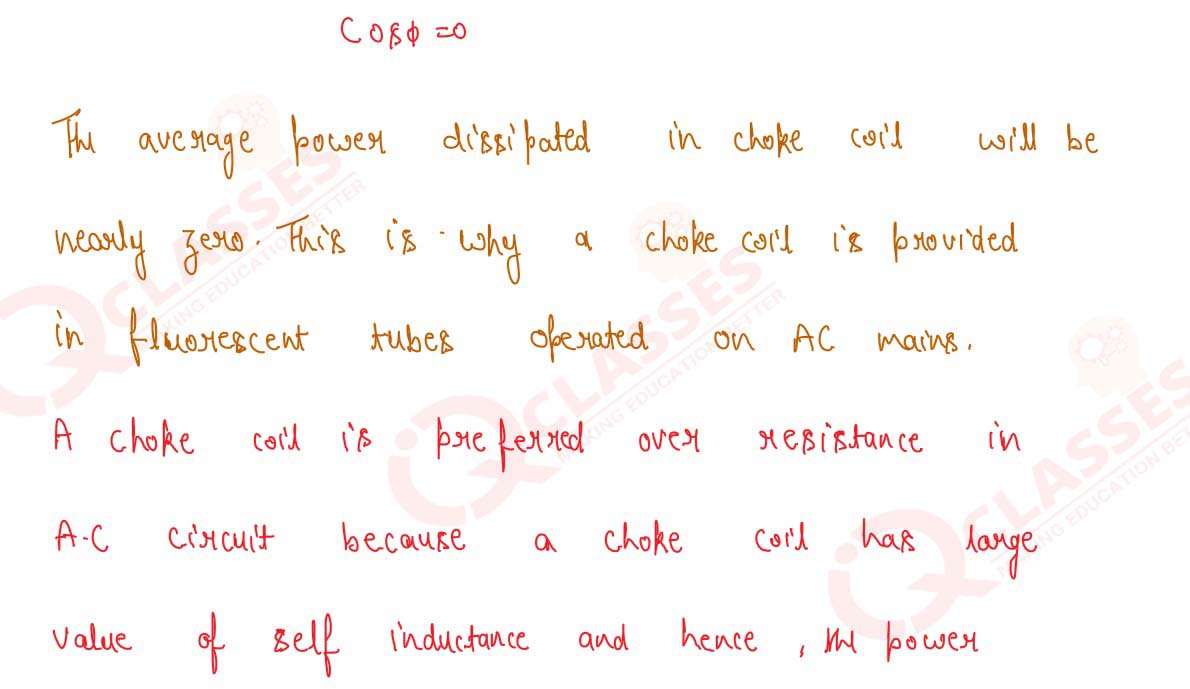 Cosϕ =0
The average power dissipated in choke coil will be
nearly zero. This is why a choke coil is provided
in fluorescent tubes operated on AC mains.
A choke coil is preferred over resistance in
A.C circuit because a choke coil has large
value of self inductance and hence, the power
iQ CLASSES
MAKING EDUCATION BETTER
iQ CLASSES
MAKING EDUCATION BETTER
iQ CLASSES
MAKING EDUCATION BET